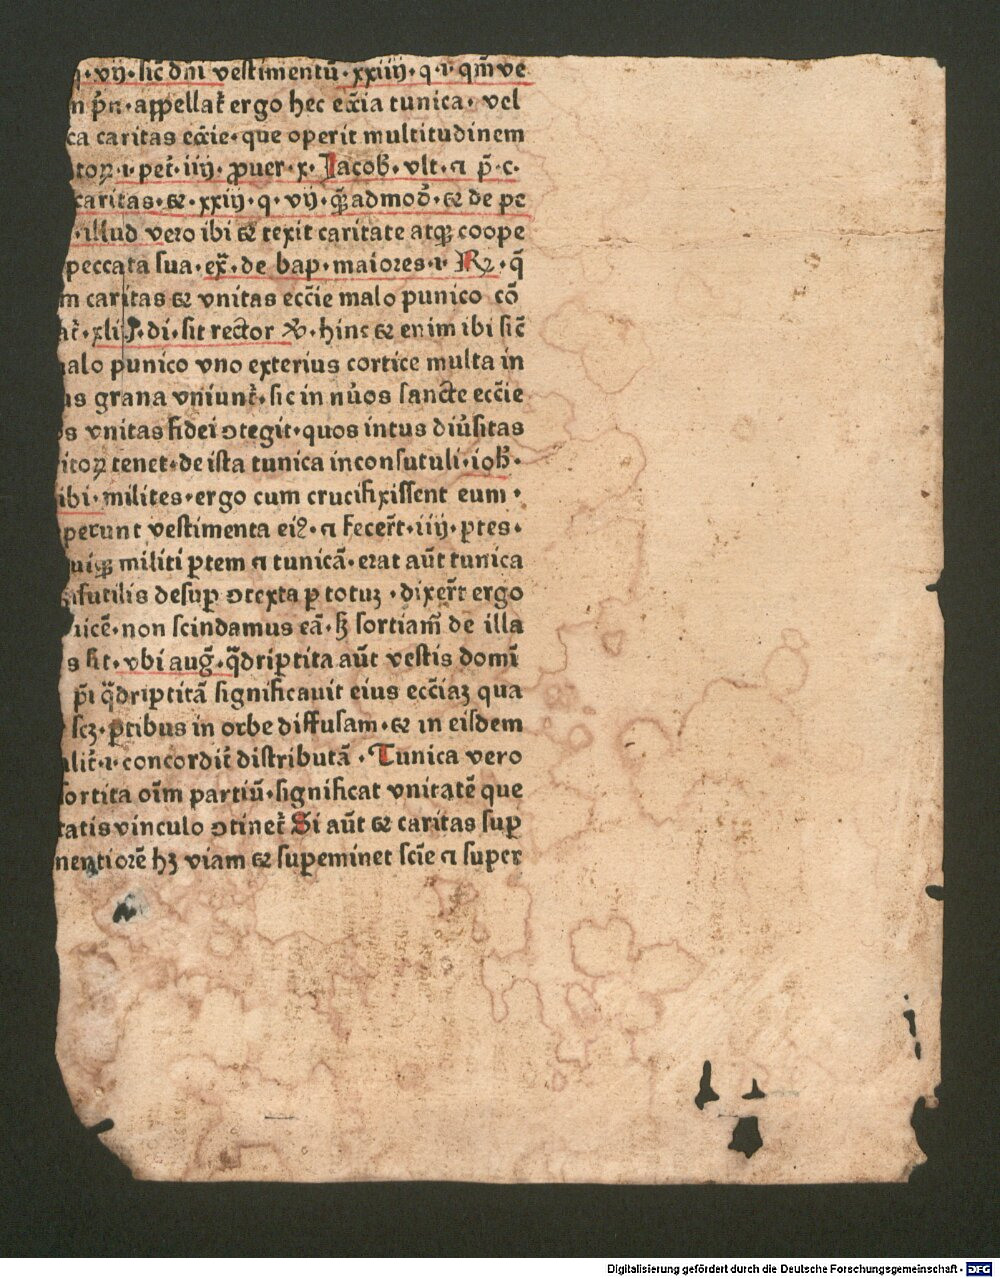 q·vij·sic̄ dn̄i vestimentū·xxiiij·q·i·qm̄ ve
n p̄n·appellat᷑ ergo hec ecc̄ia tunica·vel
ca caritas ecc̄ie·que operit multitudinem
toꝝ·i·pet᷑·iiij·ꝓuer·x·Iacob̄·vlt·⁊ p̄·c·
caritas·⁊·xxiij·q·vij·q̄ꝫadmod̄·⁊ de pe
·illud vero ibi ⁊ texit caritate atqꝫ coope
peccata sua·ex̄·de bap·maiores·i·℞·q̄
m caritas ⁊ vnitas ecc̄ie malo punico cō
at᷑·xliij·di·sit rector ꝟ·hinc ⁊ enim ibi sic̄
alo punico vno exterius cortice multa in
us grana vniunt᷑·sic in nūos sancte ecc̄ie
os vnitas fidei ↄtegit·quos intus diūsitas
itoꝝ tenet·de ista tunica inconsutuli·ioh̄·
ibi·milites·ergo cum crucifixissent eum·
perunt vestimenta eiꝰ·⁊ fecer̄t·iiij·ꝑtes·
uiqꝫ militi ꝑtem ⁊ tunicā·erat aūt tunica
ↄsutilis desuꝑ ↄtexta ꝑ totuꝫ·dixer̄t ergo
uicē·non scindamus eā·sꝫ sortiam̄ de illa
s sit·vbi auḡ·q̄driꝑtita aūt vestis domī
pi q̄driꝑtitā significauit eius ecc̄iaꝫ qua
scꝫ·ꝑtibus in orbe diffusam·⁊ in eisdem
alit᷑·i·concordit᷑ distributā·Tunica vero
sortita oīm partiū·significat vnitatē que
tatis vinculo ↄtinet᷑ Si aūt ⁊ caritas suꝑ
nentiorē hꝫ viam ⁊ suꝑeminet scīe ⁊ super
Digitalisierung gefördert durch die Deutsche Forschungsgemeinschaft · DFG